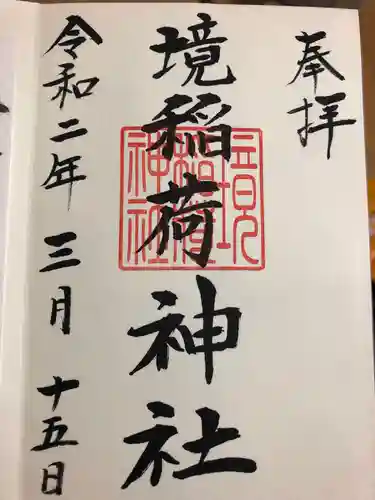 奉拝
境稲荷神社
境稲荷神社
令和二年 三月 十五日